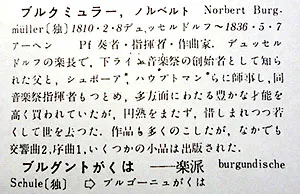 ブルクミュラー，ノルベルト Norbert Burg-
müller〔独〕1810・2・8デュッセルドルフ〜1836・5・7
アーヘン Pf奏者・指揮者・作曲家. デュッセル
ドルフの楽長で，下ライン音楽祭の創始者として知ら
れた父と，シュポーア*，ハウプトマン*らに師事し，同
音楽祭指揮者もつとめ，多方面にわたる豊かな才能を
高く買われていたが，円熟をまたず，惜しまれつつ若
くして世を去った．作品も多くのこしたが，なかでも
交響曲2，序曲1，いくつかの小品は出版された．
ブルグントがくは ──楽派 burgundische
Schule〔独〕 ⇨ ブルゴーニュがくは